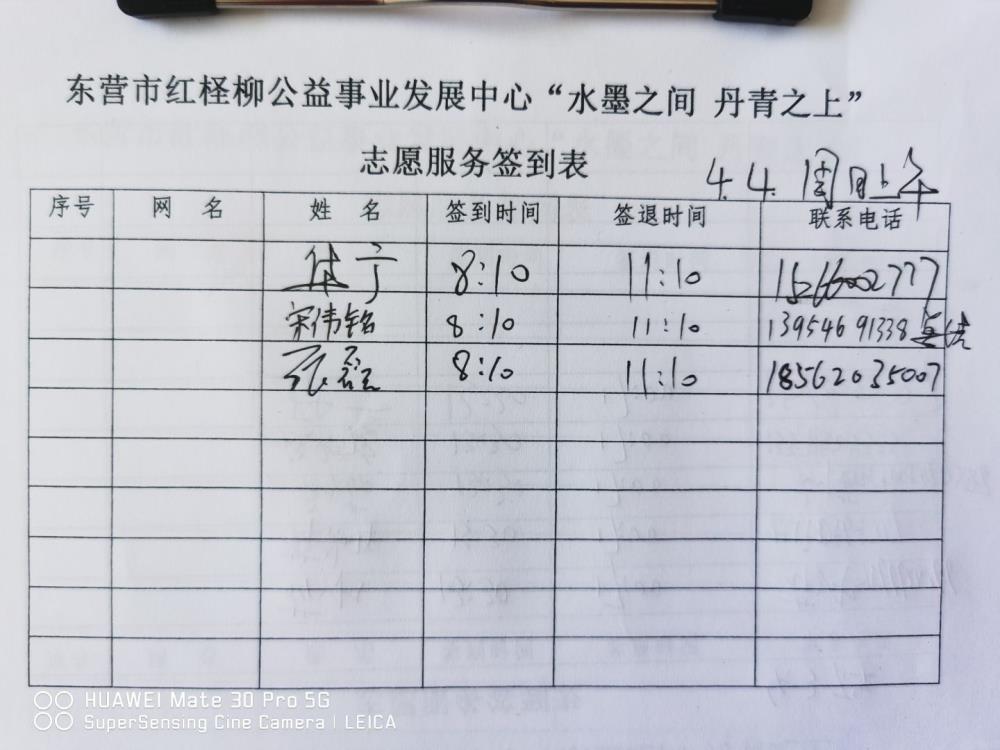 东营市红柽柳公益事业发展中心“水墨之间 丹青之上”
志愿服务签到表
4.4.周日上午
序号 网 名 姓 名 签到时间 签退时间 联系电话
8:10 11:10 15266002777
宋伟铭 8:10 11:10 13954691338
张磊 8:10 11:10 18562035007
HUAWEI Mate 30 Pro 5G
SuperSensing Cine Camera | LEICA